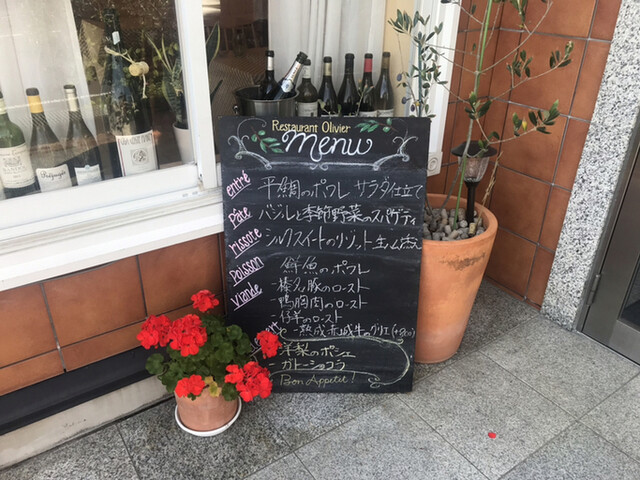 Restaurant Olivier
menu
entré 平鯛のポワレ サラダ仕立て
pâte バジルと季節野菜のスパゲティ
rissote シルクスイートのリゾット 生ハム添え
poisson 鮮魚のポワレ
viande -榛名豚のロースト
-鴨胸肉のロースト
-仔羊のロースト
-熟成赤城牛のグリエ
-洋梨のポシェ
-ガトーショコラ
Bon Appetit!